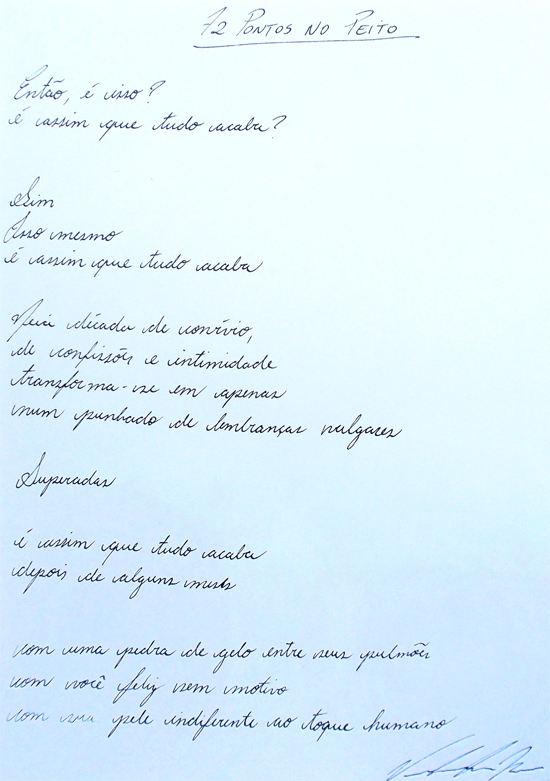 72 PONTOS NO PEITO
Então, é isso?
é assim que tudo acaba?
Sim
Isso mesmo
é assim que tudo acaba
Meia década de convívio,
de confissões e intimidade
transforma-se em apenas
num punhado de lembranças vulgares
Superadas
é assim que tudo acaba
depois de alguns meses
com uma pedra de gelo entre seus pulmões
com você feliz sem motivo
com sua pele indiferente ao toque humano